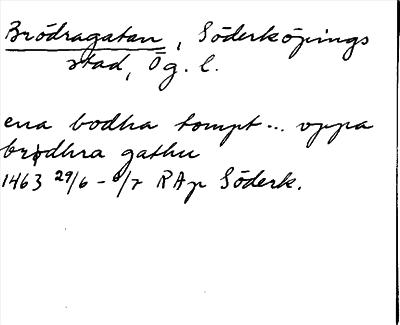 Brödragatan, Söderköpings
stad, Ög. l.
ena bodha tompt... oppa
brødhra gathu
1463 29/6 - 6/7 RAp Söderk.